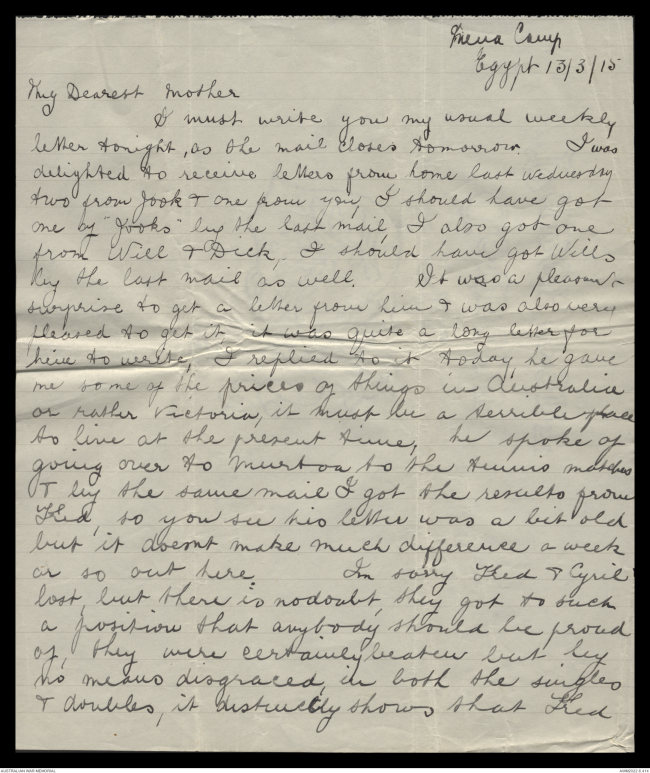 Mena Camp
Egypt 13/3/15
My Dearest Mother
I must write you my usual weekly
letter tonight, as the mail closes tomorrow. I was
delighted to receive letters from home last Wednesday
two from Jook & one from you, I should have got
one by "Jooks" by the last mail, I also got one
from Will & Dick, I should have got Wills
by the last mail as well. It was a pleasant
surprise to get a letter from him & was also very
pleased to get it, it was quite a long letter for
him to write, I replied to it today, he gave
me some of the prices of things in Australia
or rather Victoria, it must be a terrible place
to live at the present time, he spoke of
going over to Murtoa to the tennis matches
& by the same mail I got the results from
Fred, so you see his letter was a bit old
but it doesnt make much difference a week
or so out here. Im sorry Fred & Cyril
lost, but there is nodoubt, they got to such
a position that anybody should be proud
of, they were certainly beaten but by
no means disgraced, in both the singles
& doubles, it distinctly shows that Fred
AUSTRALIAN WAR MEMORIAL